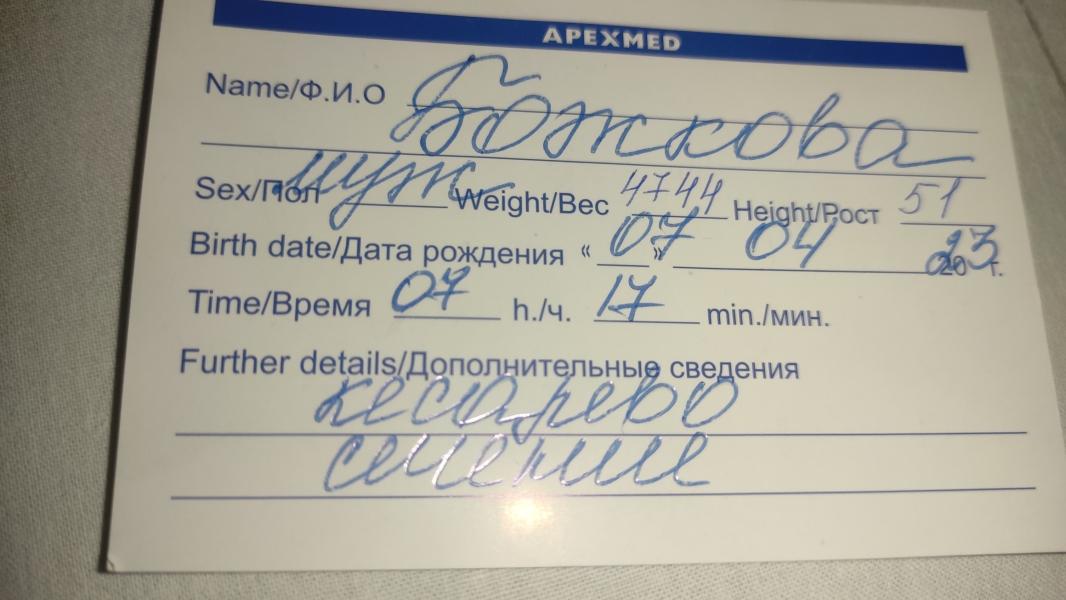 APEXMED
Name/Ф.И.О Божкова
Sex/Пол муж Weight/Вес 4744 Height/Рост 51
Birth date/Дата рождения « 07 » 04 2023 г.
Time/Время 07 h./ч. 17 min./мин.
Further details/Дополнительные сведения
кесарево
сечение